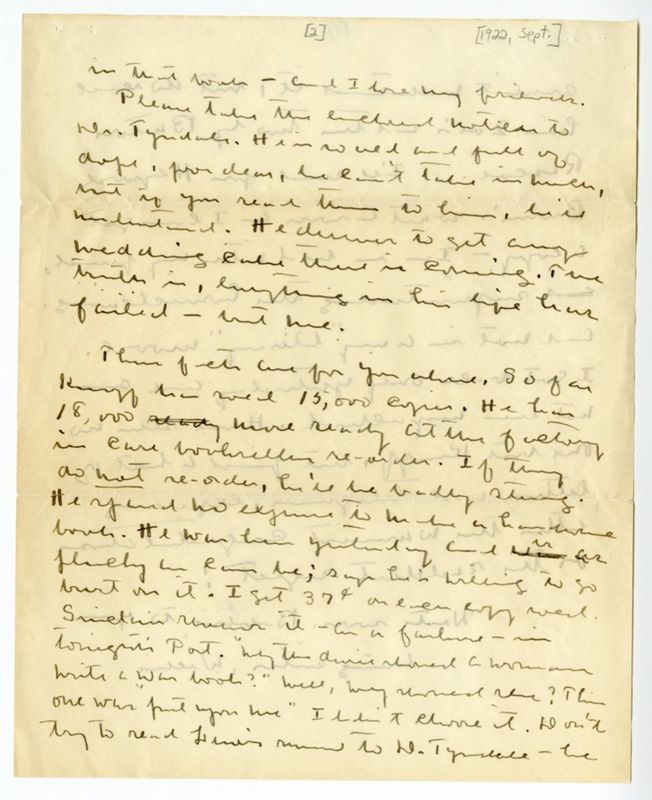 [2] [1922, Sept.]
in that book — and I love my friends.
Please take the enclosed notices to
Dr. Tyndale. He is so old and full of
dope, poor dear, he can't take in much,
but if you read them to him, he'll
understand. He deserves to get any
wedding cake there is coming. The
truth is, everything in his life has
failed — but me.
These facts are for you alone. So far
Knopf has sold 15,000 copies. He has
18,000 ready more ready at the factory
in case booksellers re-order. If they
do not re-order, he'll be badly stung.
He spared no expense to make a handsome
book. He was here yesterday and is as
plucky as can be; says he's willing to go
bust on it. I get 37¢ on every copy sold.
Sinclair reviews it — as a failure — in
tonight's Post. "Why the should a woman
write a war book?" Well, why should she? This
one was "put upon me" I didn't choose it. Don't
try to read Lewis's to Dr. Tyndale — he